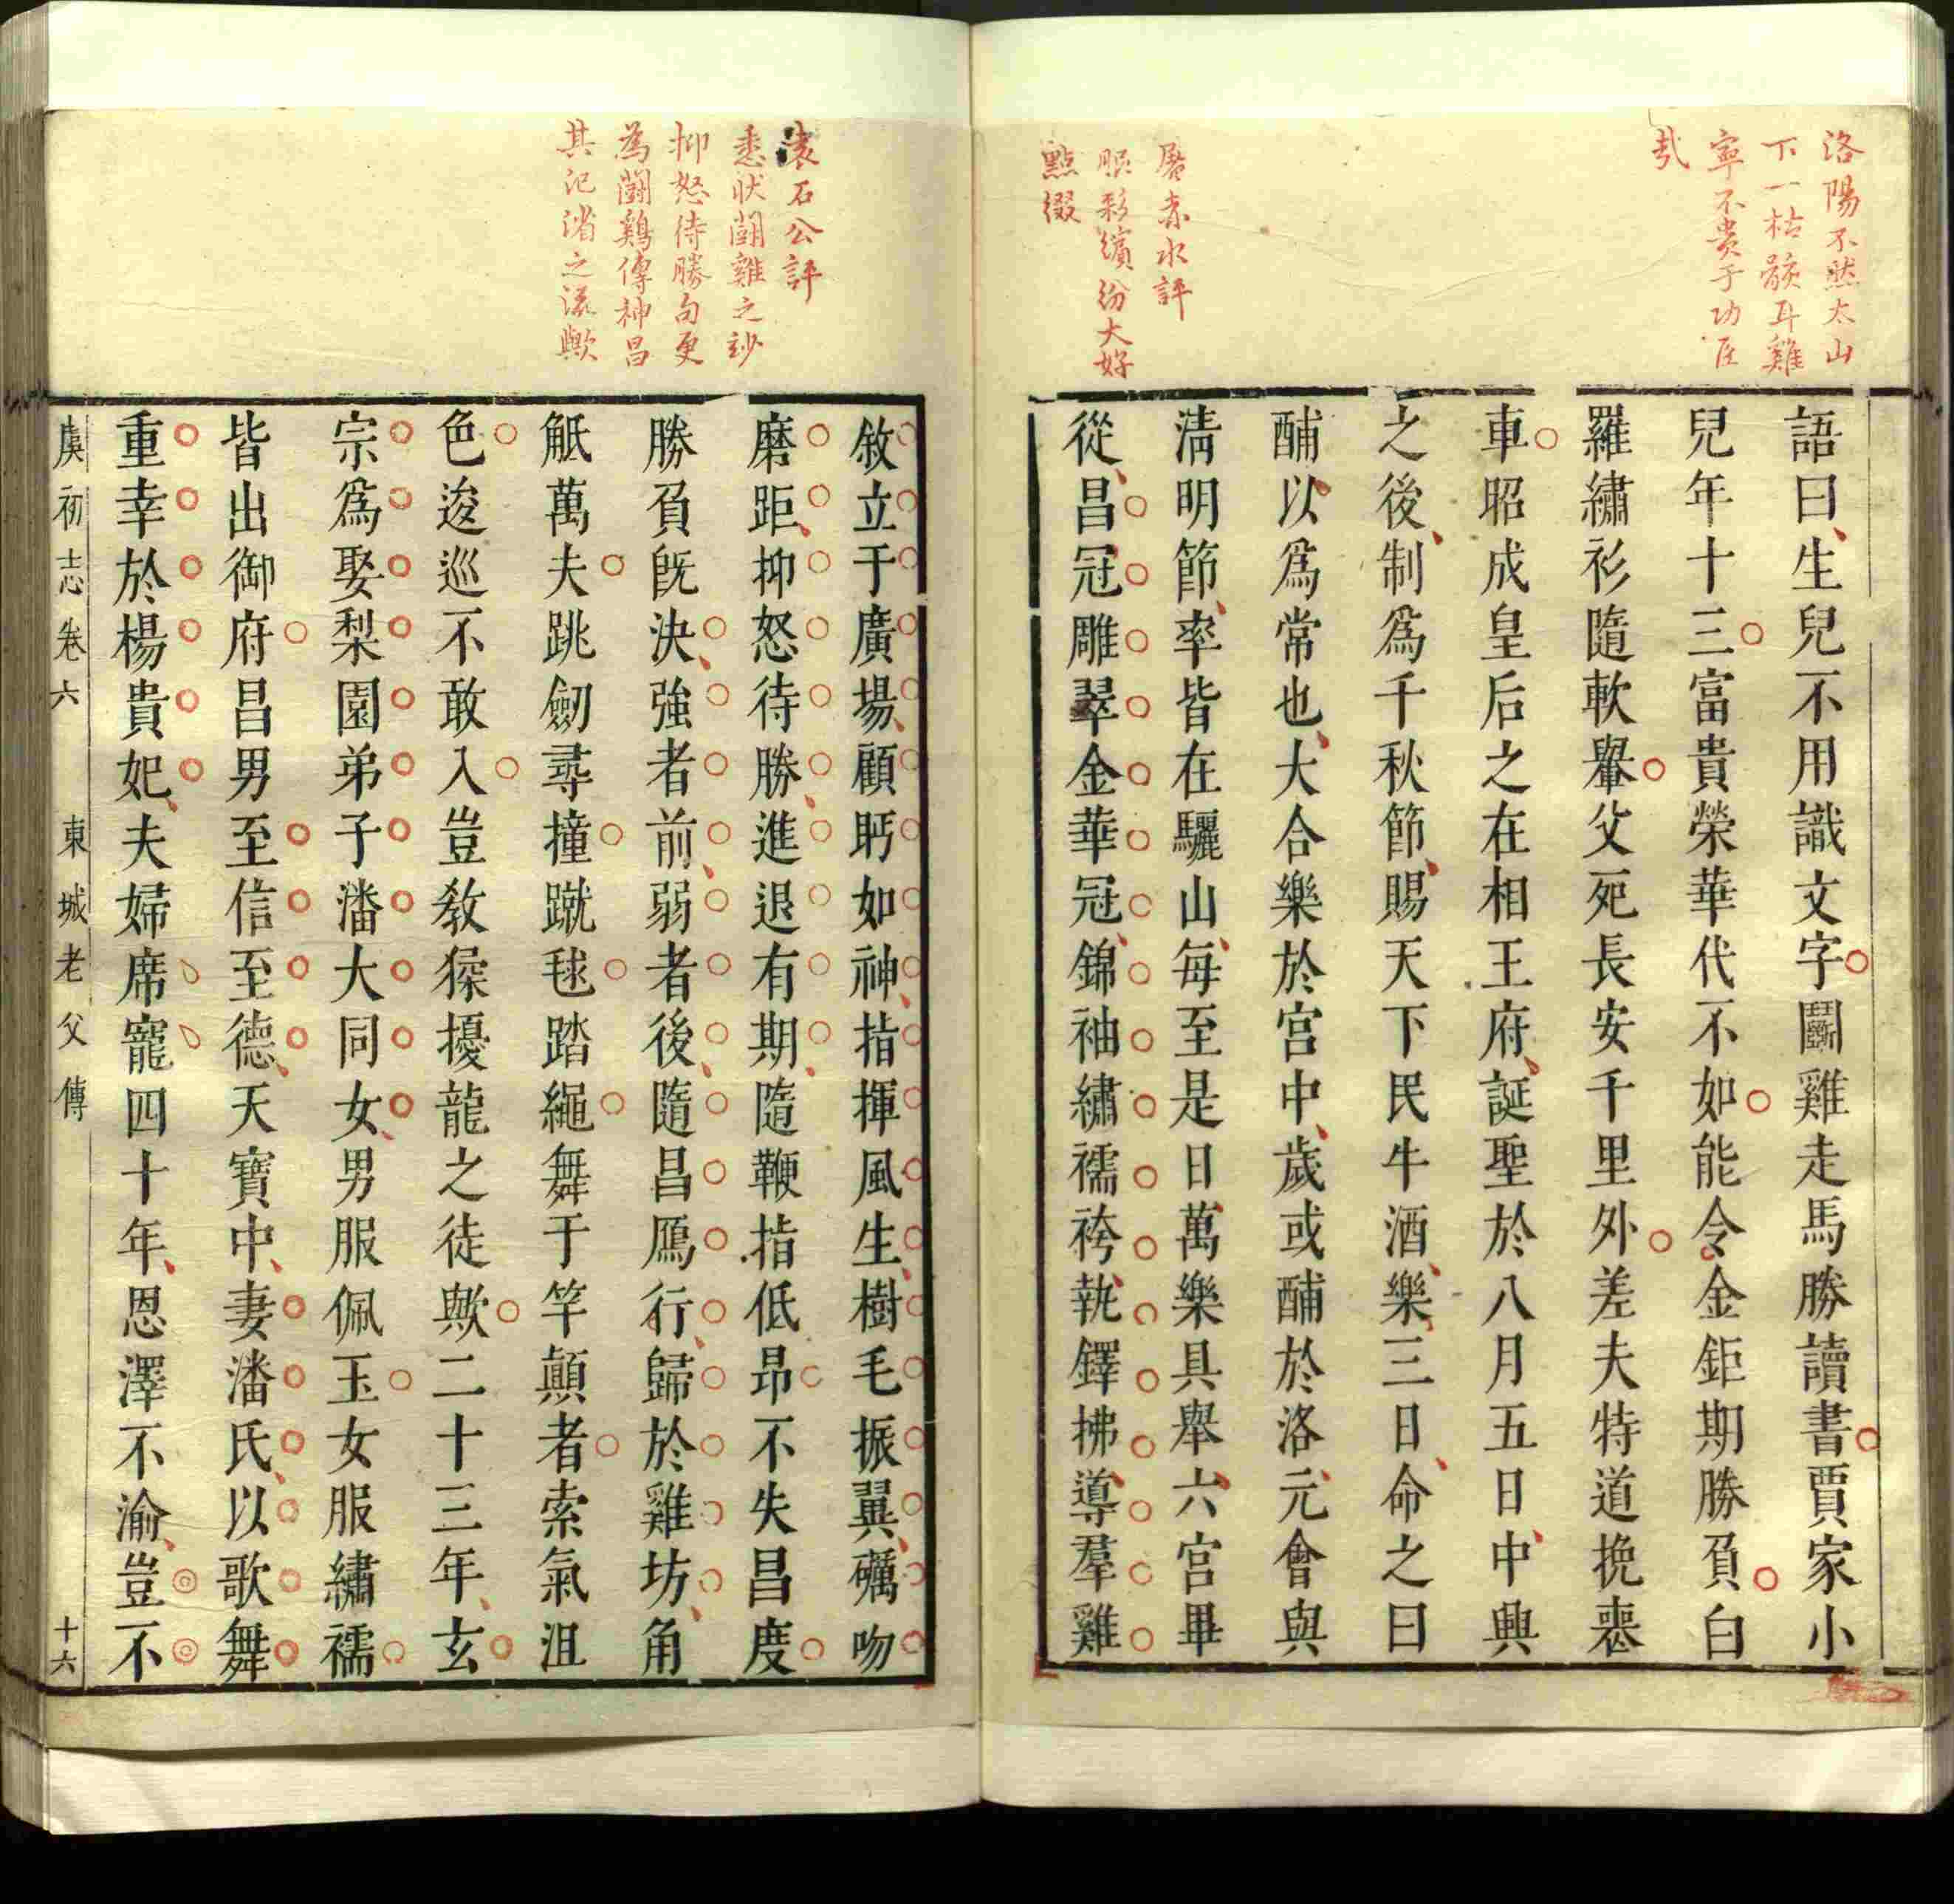 洛陽不然太山
下一枯骸耳雞
寧不貴于功臣
哉
語曰生兒不用識文字鬬雞走馬勝讀書賈家小
兒年十三富貴榮華代不如能令金鉅期勝負白
羅繡衫隨軟轝父死長安千里外差夫特道挽喪
車昭成皇后之在相王府誕聖於八月五日中興
之後制爲千秋節賜天下民牛酒樂三日命之曰
酺以爲常也大合樂於宮中歲或酺於洛元會與
清明節率皆在驪山每至是日萬樂具舉六宮畢
從昌冠雕翠金華冠錦袖繡襦袴執鐸拂導羣雞
屠赤水評
眼彩繽紛大好
點綴
袁石公評
悉狀鬪雞之玅
抑怒待勝句更
為鬪鷄傳神昌
其汜渻之流歟
敘立于廣場顧眄如神指揮風生樹毛振翼礪吻
磨距抑怒待勝進退有期隨鞭指低昂不失昌度
勝負旣決強者前弱者後隨昌鴈行歸於雞坊角
觝萬夫跳劒尋撞蹴毬踏繩舞于竿顛者索氣沮
色逡巡不敢入豈敎猱擾龍之徒歟二十三年玄
宗爲娶梨園弟子潘大同女男服佩玉女服繡襦
皆出御府昌男至信至德天寶中妻潘氏以歌舞
重幸於楊貴妃夫婦席寵四十年恩澤不渝豈不
虞初志卷六 東城老父傳 十六